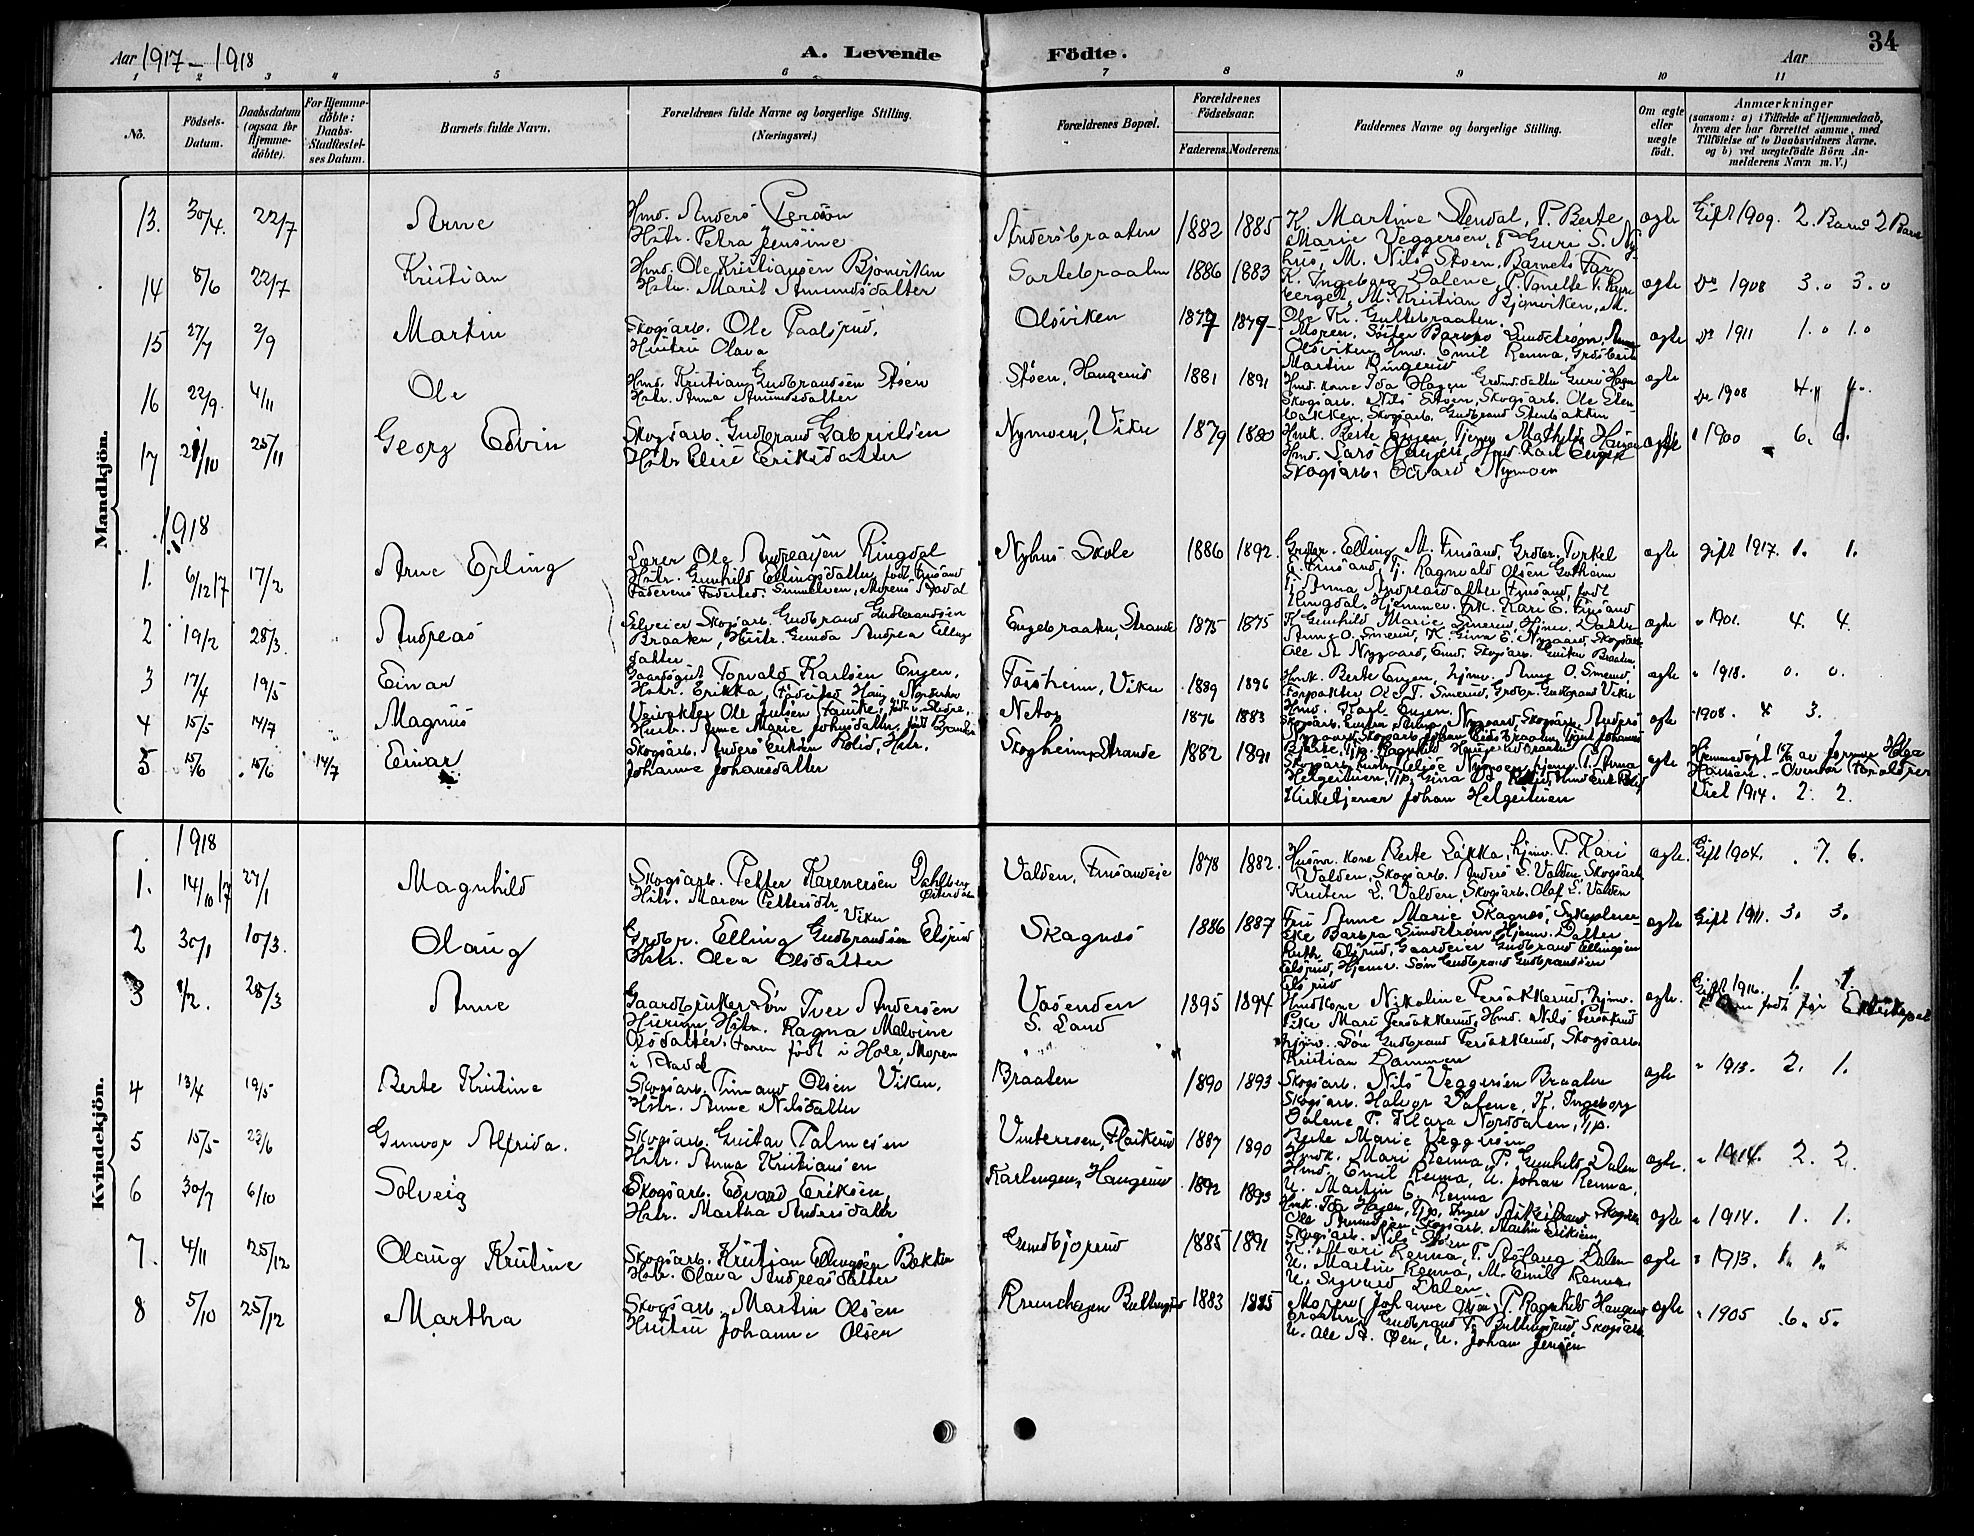 Aar 1917 – 1918
A. Levende
Födte.
Aar
34
1 2 3 4 5 6 7 8 9 10 11
No.
Födsels-
Datum.
Daabsdatum
(ogsaa for
Hjemme-
döbte).
For Hjemme-
döbte:
Daabs-
Stadfæstel-
ses Datum.
Barnets fulde Navn.
Forældrenes fulde Navne og borgerlige Stilling.
(Næringsvei.)
Forældrenes Bopæl.
Forældrenes
Födselsaar.
Faderens. Moderens.
Faddernes Navne og borgerlige Stilling.
Om ægte
eller
uægte
födt.
Anmærkninger
(saasom: a) i Tilfælde af Hjemmedaab,
hvem der har forrettet samme, med
Tilföielse af to Daabsvidners Navne.
og b) ved uægtefödte Börn An-
melderens Navn m. V.)
Mandkjön.
13. 30/4. 22/7 Arne
Hmd. Anders Persson
Hstr. Petra Jensine
Andersbraaten 1882 1885
K. Martine Stendal, P. Berte
Marie Veggersen, P. Guri S. Ny
hus, M. Nils Stoen, Barnets Far
ægte Gift 1909. 2. Barn 2 Barn
14 8/6 22/7 Kristian
Hmd. Ole Kristiansen Bjonviken
Hstr. Marit Amundsdatter
Sortebraaten 1886 1883
K. Ingeborg Dalene, P.
M. Kristian Bjonviken, M.
Ole K. Guttebraaten.
ægte Do 1908 3. 3.
15 27/7 2/9 Martin
Skogsarb. Ole Paalsrud,
Hustru Olava
Olsviken 1877 1879
Moren, Söster Barbro Sundström,
Olsviken, Hmd. Emil Renna,
Martin Ringerud
ægte Do 1911 1. 1.
16 22/9. 4/11 Ole
Hmd. Kristian Gudbrandsen Stoen
Hstr. Anna Amundsdatter
Stöen, Haugerud 1881 1891
Hmd. kone Ida Hagen Guri Hagen
Skogsarb. Nils Stoen, Skogsarb. Ole Sten-
bakken, Skogsarb. Gudbrand Stenbakken
ægte Do 1908 4. 4.
17 21/10 25/11 Georg Edvin
Skogsarb. Gudbrand Gabrielsen
Hstr. Elise Eriksdatter
Nymoen, Viker 1879 1880
Hmk. Berte Engen, Tjener Mathilde
Hmd. Lars Hmd. Karl Engen
Skogsarb. Edvard Nymoen
ægte 1900 6. 6.
1918
1. 6/12 17 17/2 Arne Erling
Lærer Ole Andreassen Ringdal
Hstr. Gunhild Ellingsdatter, födt Finsand
Faderens Födested: Morens Aadal
Nyhus Skole 1886 1892.
Grdbr. Elling M. Finsand, Grdbr. Torkel
E. Finsand, Tj. Ragnvald Olsen
Tj. Anna Andreasdatter Finsand, födt
Ringdal, Hjemmev. Frk. Kari E. Finsand
ægte gift 1917. 1. 1.
2 19/2 28/3. Andreas
Selveier Skogsarb. Gudbrand Gudbrandsen
Braaten, Hustr. Gunda Andrea Elling
datter
Engebraaten, Strande 1875 1875
K. Gunhild Marie Smerud, Hjmv. Datter
Anne O. Smerud, K. Gina E. Nygaard, Skogsarb.
Ole A. Nygaard, Skogsarb. Braaten
ægte 1901. 4. 4.
3 17/4 19/5 Einar
Gaardsgut Torvald Karlsen Engen,
Hstr. Erikka, Födested Haug, Norderhov
Forsheim, Viker 1889 1896
Hmk. Berte Engen, hjmv. Anny O. Smerud,
Forpakter Ole T. Smerud, Grdbr. Gudbrand Viker
Hmd. Karl Engen.
ægte 1918. 0. 0.
4 15/5 14/7 Magnus
Veivokter Ole Julsen
Hustr. Anne Marie Johnsdatter, födt
Netop 1876 1883
Skogsarb. Nygaard, Skogsarb. Anders
Nygaard, Skogsarb. Johan
Ragnhild Haugerudbraaten
ægte 1908. 4 3.
5 15/6 15/6 14/7 Einar
Skogsarb. Anders Eriksen Kolid, Hstr.
Johanne Johansdatter
Skogheim, Strande 1882 1891
Skogsarb. hustr. Elise Nymoen, hjmv. P. Anna
Helgestuen, Gina
Kirketjener Johan Helgestuen
ægte Hjemmedöpt av jormor Helga
Hansen. Ovenfor Foreldrer
Viet 1914. 2. 2.
Kvindekjön.
1918
1. 14/10 17 27/1 Magnhild
Skogsarb. Petter Karenersen Dahlberg
Hstr. Maren Pettersdtr. Österdalen
Valden, Finsandeie 1878 1882.
Husm. kone Berte Lökka, hjmv. P. Kari
Valden, Skogsarb. Anders L. Valden, Skogsarb.
Kristen L. Valden, Skogsarb. Olaf L. Valden
ægte. Gift 1904. 7. 6.
2 30/1 10/3. Olaug
Viker
Grdbr. Elling Gudbrandsen Elsrud
Hstr. Olea Olsdatter
Skagnæs 1886 1887
Fru Anne Marie Skagnæs, Sykepleier-
ske Barbra Sundström, Hjemv. Datter
Ruth Elsrud, Gaardeier Gudbrand Ellingsen
Elsrud, Hjemv. Sön Gudbrand Gudbrandsen
Elsrud
ægte Gift 1911. 3. 3.
3 9/2. 28/3 Anne
Gaardbruker Sön Iver Andersen
Hurum, Hstr. Ragna Malvine
Olsdatter. Faren födt i Hole, Moren
i Aadal
Vasenden
S. Land
1895 1894
Hmdkone Nikoline Persökkerud, hjmv.
Pike Mari Persökkerud, Hmd. Nils Persökrud
hjmv. Sön Gudbrand Persökkerud, Skogsarb.
Kristian Dammen
ægte. Gift 1916. 1. 1.
Barn födt för Ekteskapet
4 13/4 19/5 Berte Kristine
Skogsarb. Timand Olsen Viken,
Hstr. Anne Nilsdatter
Braaten 1890 1893
Skogsarb. Nils Veggersen Braaten
Skogsarb. Halvor Dalene, K. Ingeborg
Dalene, P. Klara Nordalen, Tjp.
Berte Marie Veggersen
ægte 1913. 2. 1.
5 15/5 23/6 Gunvor Alfrida.
Skogsarb. Gustav Palmesen
Hstr. Anna Kristiansen
Vintersen, Flaskerud 1887 1890
Hmdk. Mari Renna, P. Gunhild Dalen
Hmd. Emil Renna, U. Johan Renna,
U. Martin E. Renna
ægte. 1914. 2. 2.
6 30/7 6/10 Solveig
Skogsarb. Edvard Eriksen,
Hstr. Martha Andersdatter
Karlengen, Haugerud 1892 1893
Hmk. Ida Hagen, Tjp. Inger
Ole Amundsen, Skogsarb. Martin Eriksen,
Skogsarb. Nils Stoen
ægte 1914. 1. 1.
7. 4/11 25/12 Olaug Kristine
Skogsarb. Kristian Ellingsen Bakken
Hstr. Olava Andreasdatter
Gundbjorud 1885 1891
K. Mari Renna, P. Aslaug Dalen
U. Martin Renna, M. Emil Renna
U. Sigvard Dalen
ægte 1913. 1. 1.
8 5/10 25/12 Martha
Skogsarb. Martin Olsen
Hustru Johanne Olsen
1883 1885
Moren (Johanne Olsen), P. Ragnhild Haugerud
braaten, Gudbrand T. Bullingsrud, Skogsarb.
U. Ole A. Öen, U. Johan Jensen
ægte 1905 6. 5.